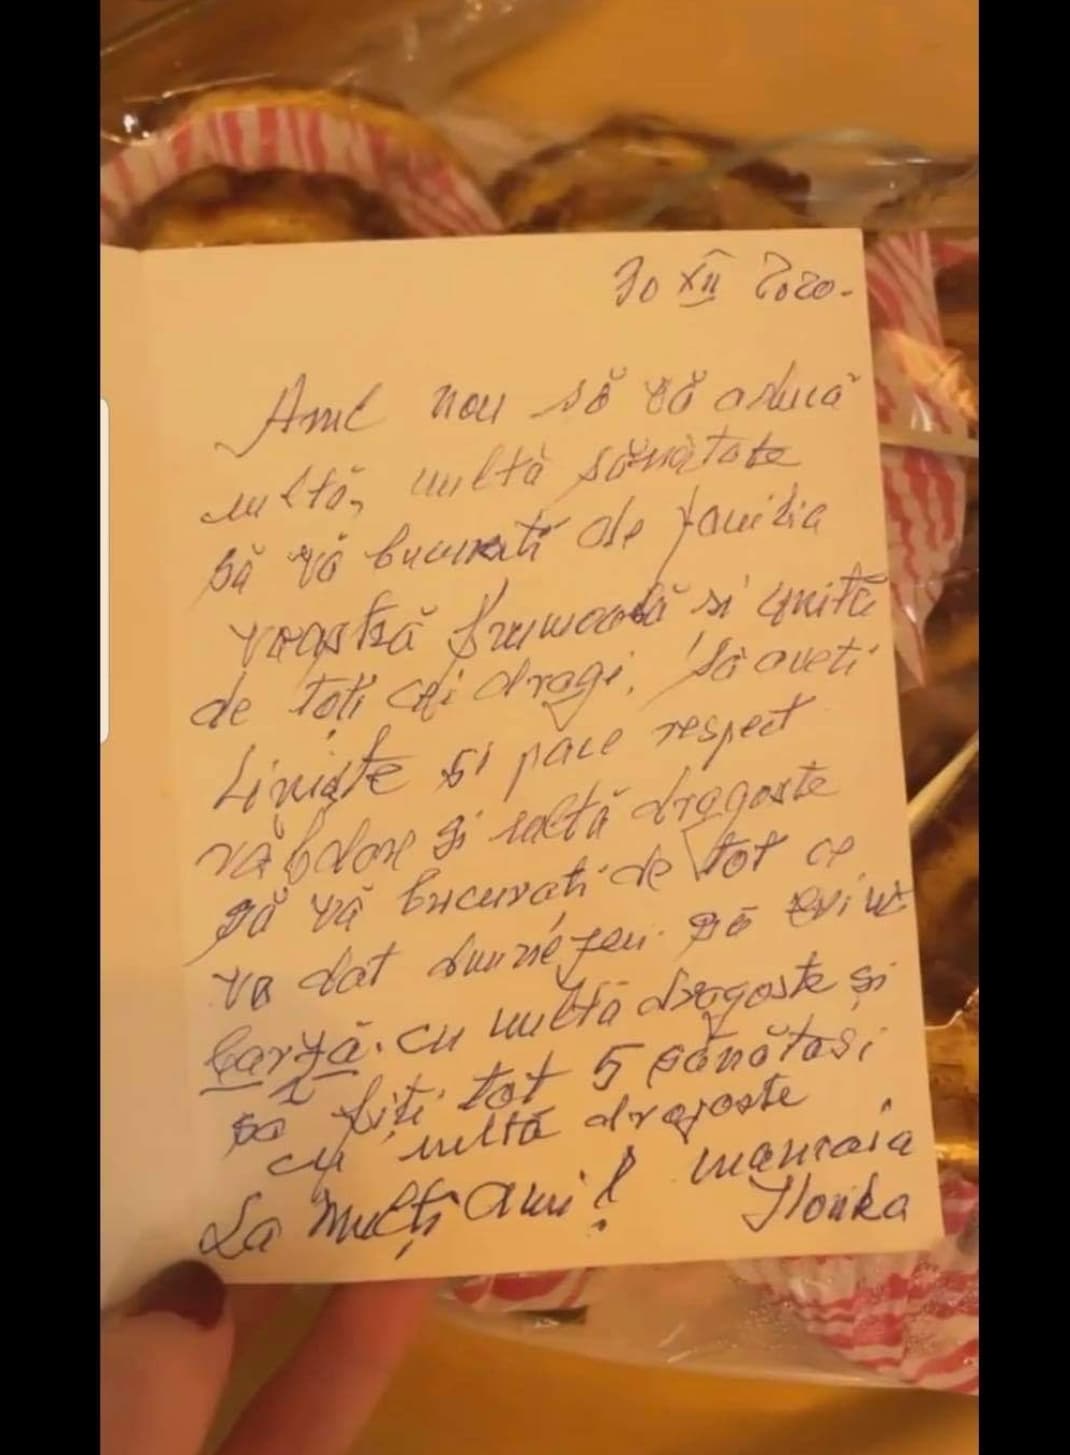 30 XII 2020.
Anul nou să vă aducă
multă, multă sănătate
să vă bucurati de familia
voastră frumoasă si unită
de toți cei dragi. Să aveti
Liniște si pace respect
răbdare și multă dragoste
să vă bucurati de tot ce
va dat dumnezeu. să vi
barză. cu multă dragoste și
să fiți tot 5 sănătosi
cu multă dragoste
La Mulți ani! mamaia
Ilonka